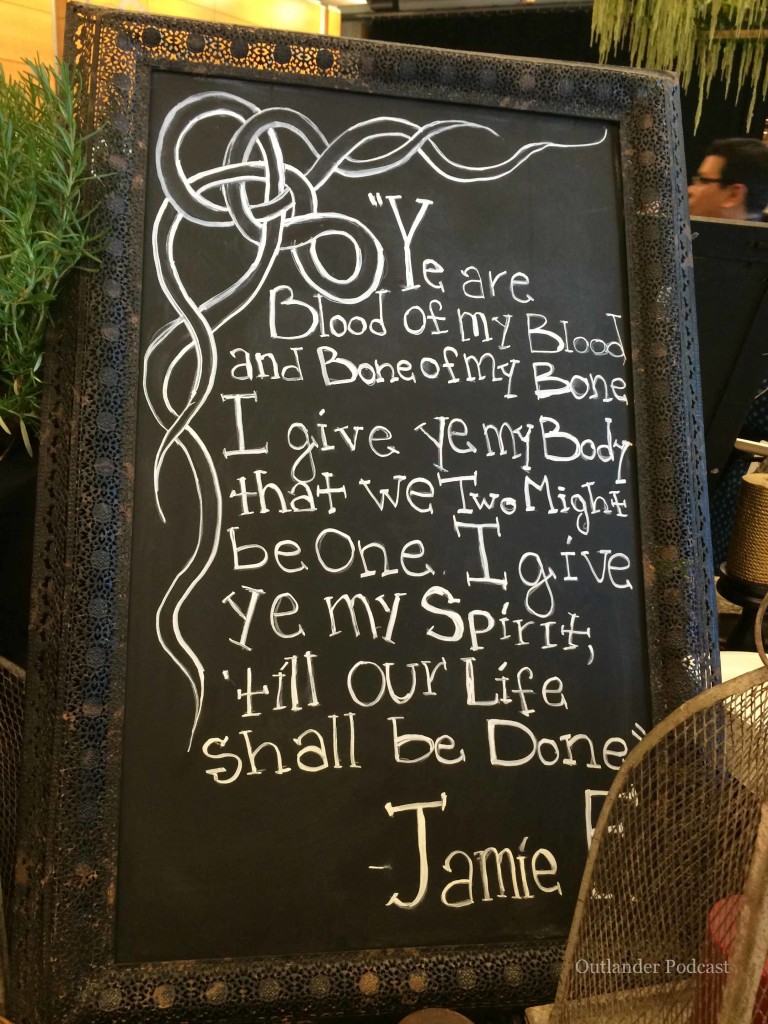 "Ye are
Blood of my Blood
and Bone of my Bone
I give ye my Body
that we Two Might
be One. I give
ye my Spirit,
'till our Life
shall be Done"
-Jamie
Outlander Podcast